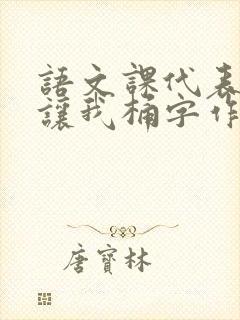 語文課代表
讓我桶字作
唐寶林